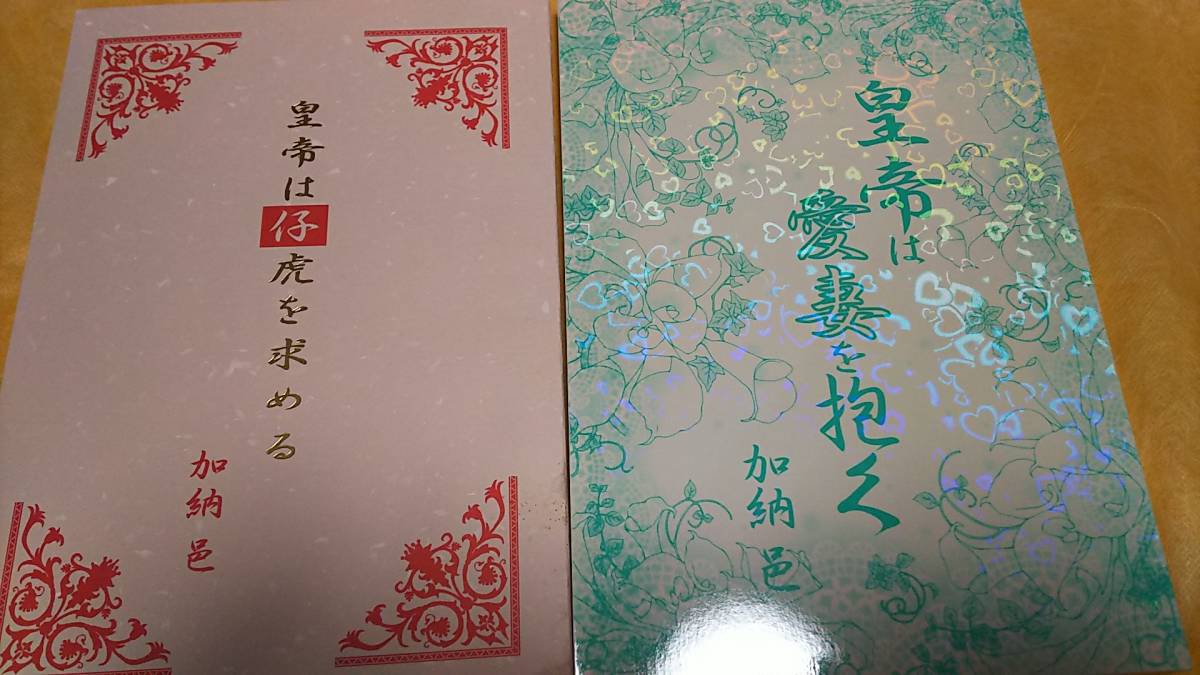 皇帝は仔虎を求める
加納 邑
皇帝は
愛妻を抱く
加納 邑